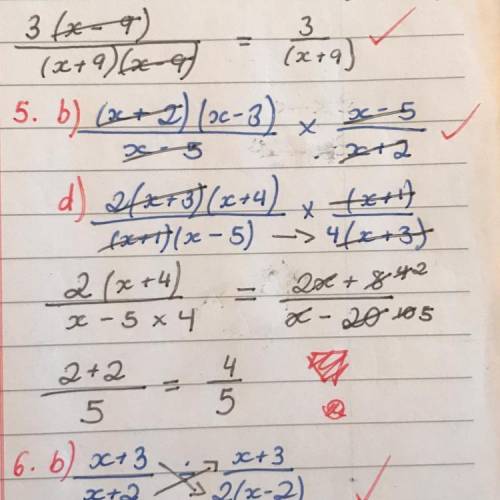 3(x-9) / (x+9)(x-9) = 3 / (x+9) ✓
5. b) (x+2)(x-3) / x-5 × x-5 / x+2 ✓
d) 2(x+3)(x+4) / (x+1)(x-5) × (x+1) / 4(x+3)
2(x+4) / x-5×4 = 2x+8 2 / x-20 5
2+2 / 5 = 4 / 5
6. b) x+3 / x+2 ÷ x+3 / 2(x-2) ✓